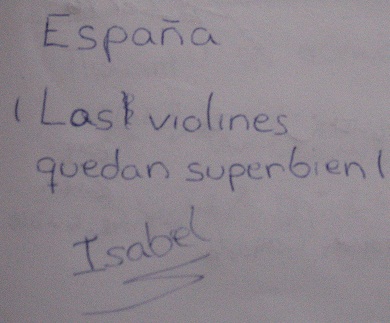 España
¡Las violines
quedan superbien!
Isabel